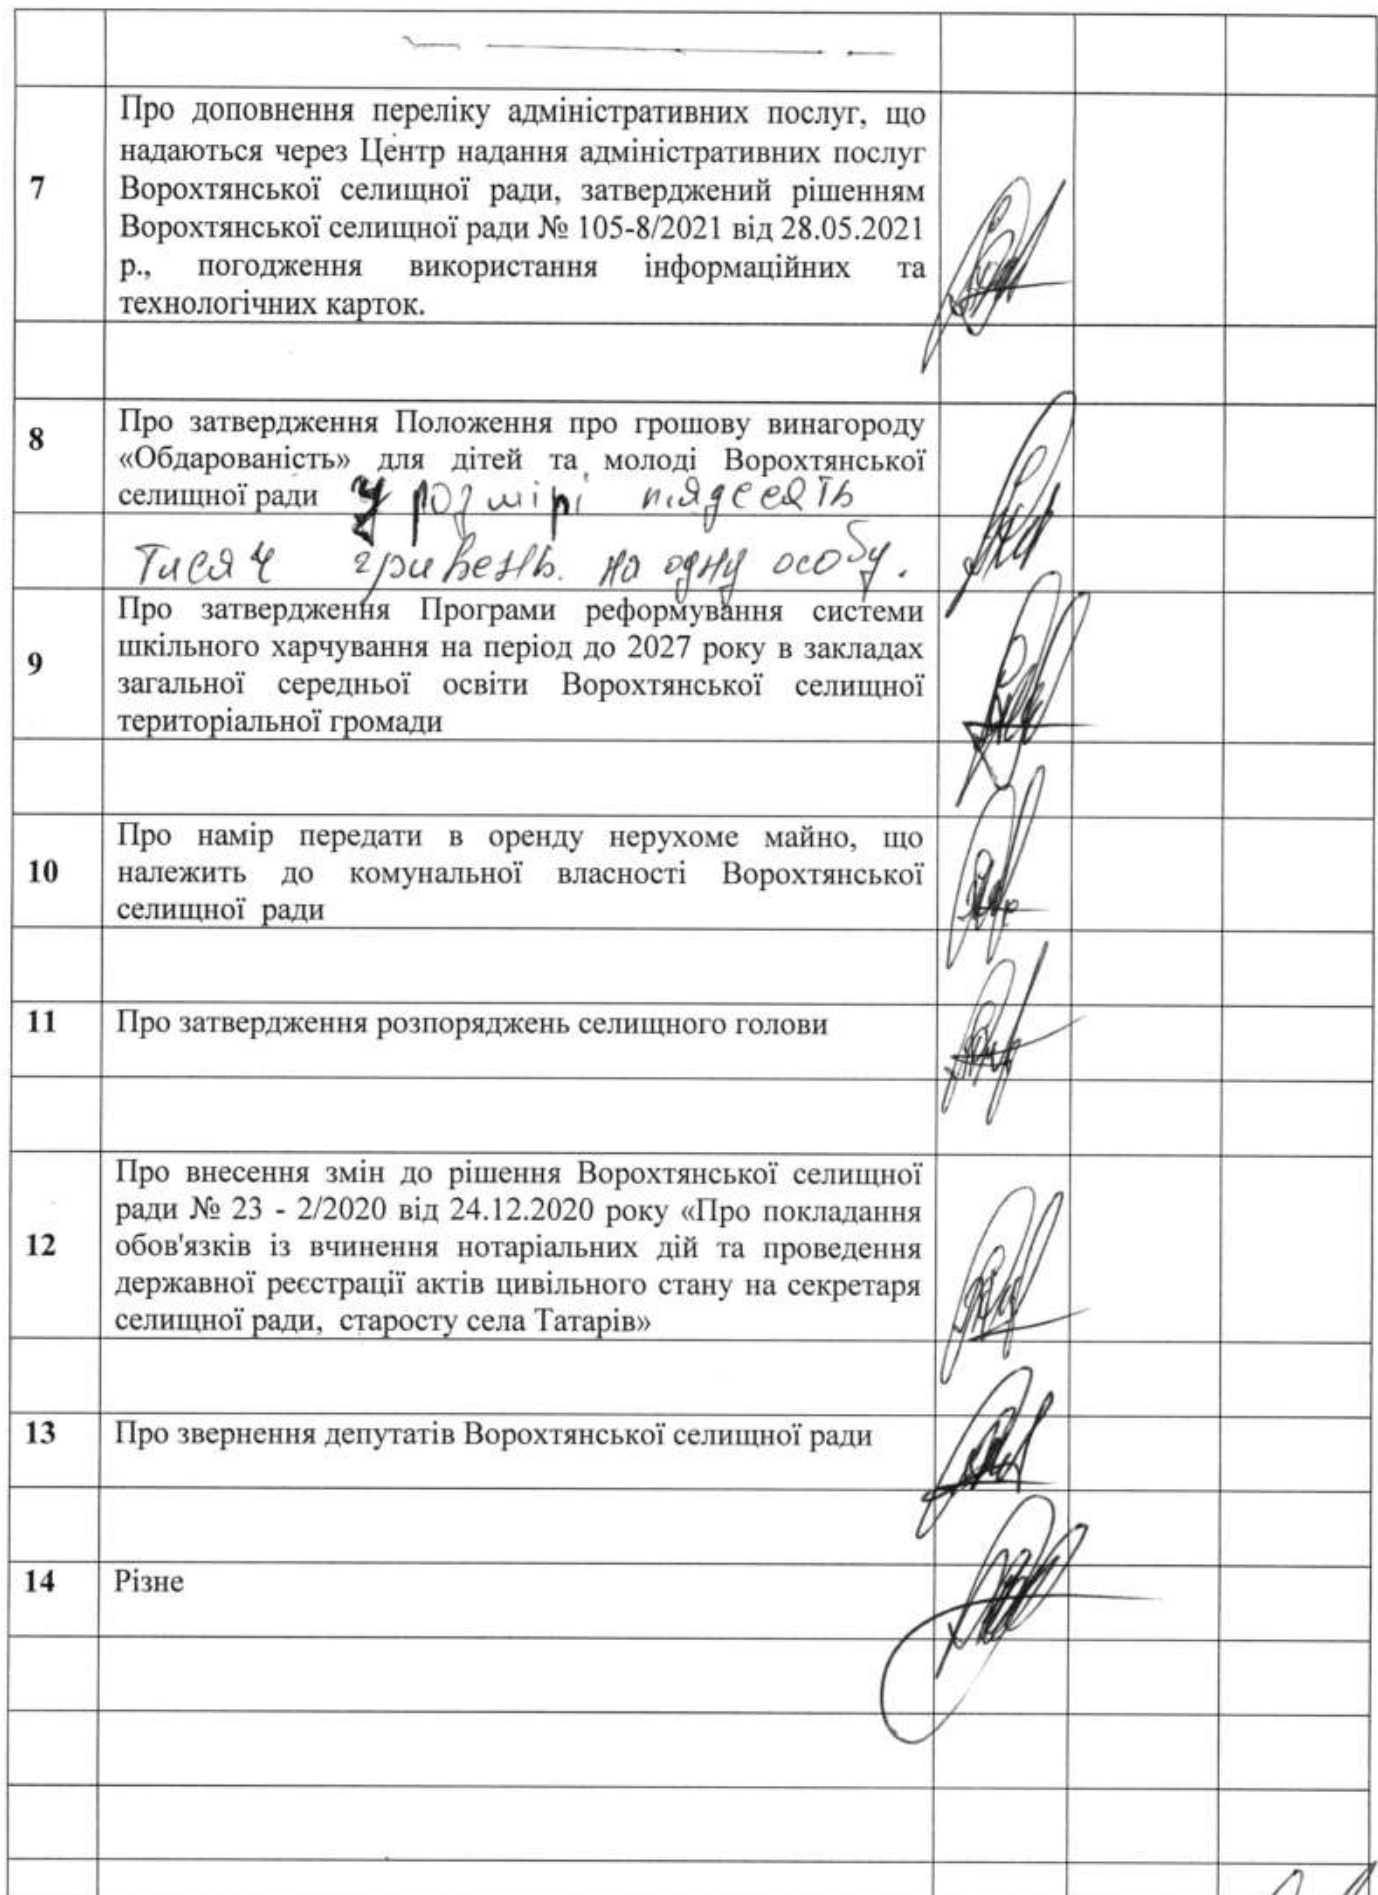 Про доповнення переліку адміністративних послуг, що
надаються через Центр надання адміністративних послуг
7 Ворохтянської селищної ради, затверджений рішенням
Ворохтянської селищної ради № 105-8/2021 від 28.05.2021
р., погодження використання інформаційних та
технологічних карток.
8 Про затвердження Положення про грошову винагороду
«Обдарованість» для дітей та молоді Ворохтянської
селищної ради у розмірі пядесять
тисяч гривень. на одну особу.
Про затвердження Програми реформування системи
шкільного харчування на період до 2027 року в закладах
9 загальної середньої освіти Ворохтянської селищної
територіальної громади
Про намір передати в оренду нерухоме майно, що
10 належить до комунальної власності Ворохтянської
селищної ради
11 Про затвердження розпоряджень селищного голови
Про внесення змін до рішення Ворохтянської селищної
ради № 23 - 2/2020 від 24.12.2020 року «Про покладання
12 обов'язків із вчинення нотаріальних дій та проведення
державної реєстрації актів цивільного стану на секретаря
селищної ради, старосту села Татарів»
13 Про звернення депутатів Ворохтянської селищної ради
14 Різне